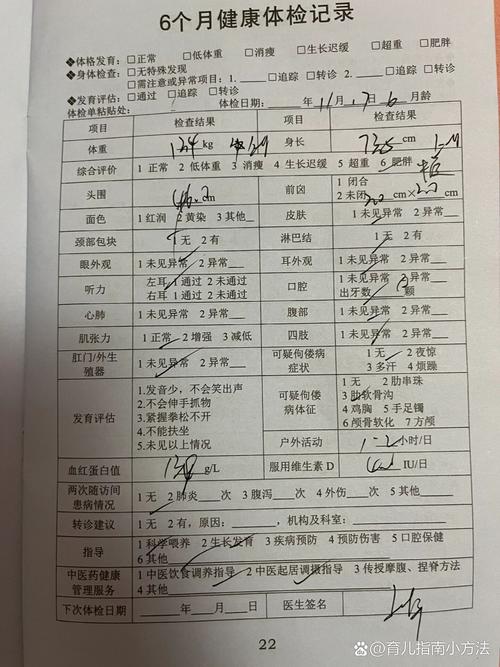 6个月健康体检记录
◆体格发育：□正常 □低体重 □消瘦 □生长迟缓 □超重 □肥胖
◆身体检查：□无特殊发现
□需注意或异常项目：1.____□追踪 □转诊 2.____□追踪 □转诊
◆发育评估：□通过 □追踪 □转诊
体检单粘贴处： 体检日期：____年 11 月 17 日 6 月龄
项目 检查结果 项目 检查结果
体重 kg 身长 73.5 cm
综合评价 1 正常 2 低体重 3 消瘦 4 生长迟缓 5 超重 6 肥胖
头围 cm 前囟 1 闭合
2 未闭 cm× cm
面色 1 红润 2 黄染 3 其他__ 皮肤 1 未见异常 2 异常___
颈部包块 1 无 2 有 淋巴结 1 未见异常 2 异常___
眼外观 1 未见异常 2 异常___ 耳外观 1 未见异常 2 异常___
听力 左耳 1 通过 2 未通过
右耳 1 通过 2 未通过 口腔 1 未见异常 2 异常___
出牙数 颗
心肺 1 未见异常 2 异常___ 腹部 1 未见异常 2 异常___
肌张力 1 正常 2 增强 3 减低 四肢 1 未见异常 2 异常___
肛门/外生殖器 1 未见异常 2 异常___ 可疑佝偻病症状 1 无 2 夜惊
3 多汗 4 烦躁
发育评估 1.发音少，不会笑出声
2.不会伸手抓物
3.紧握拳松不开
4.不能扶坐
5.未见以上情况
可疑佝偻病体征 1 无 2 肋串珠
3 肋软骨沟
4 鸡胸 5 手足镯
6 颅骨软化 7 方颅
户外活动 1-2 小时/日
血红蛋白值 g/L 服用维生素 D IU/日
两次随访间患病情况 1 无 2 肺炎___次 3 腹泻___次 4 外伤___次 5 其他____
转诊建议 1 无 2 有，原因：______，机构及科室：________
指导 1 科学喂养 2 生长发育 3 疾病预防 4 预防伤害 5 口腔保健
6 其他____
中医药健康管理服务 1 中医饮食调养指导 2 中医起居调摄指导 3 传授摩腹、捏脊方法
4 其他____
下次体检日期 ____年____月____日 医生签名
22
头条 @育儿指南小方法